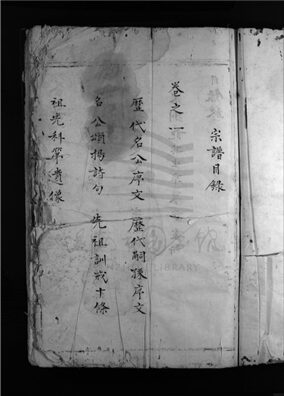 宗譜目錄
卷之一
歷代名公序文 歷代嗣孫序文
名公頌揚詩句 先祖訓戒十條
祖先科第遺像
LIBRARY